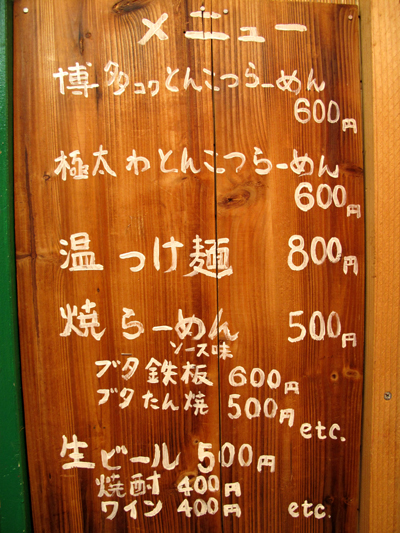 メニュー
博多コクとんこつらーめん
600円
極太わとんこつらーめん
600円
温つけ麺 800円
焼らーめん 500円
ソース味
ブタ鉄板 600円
ブタたん焼 500円
etc.
生ビール 500円
焼酎 400円
ワイン 400円 etc.